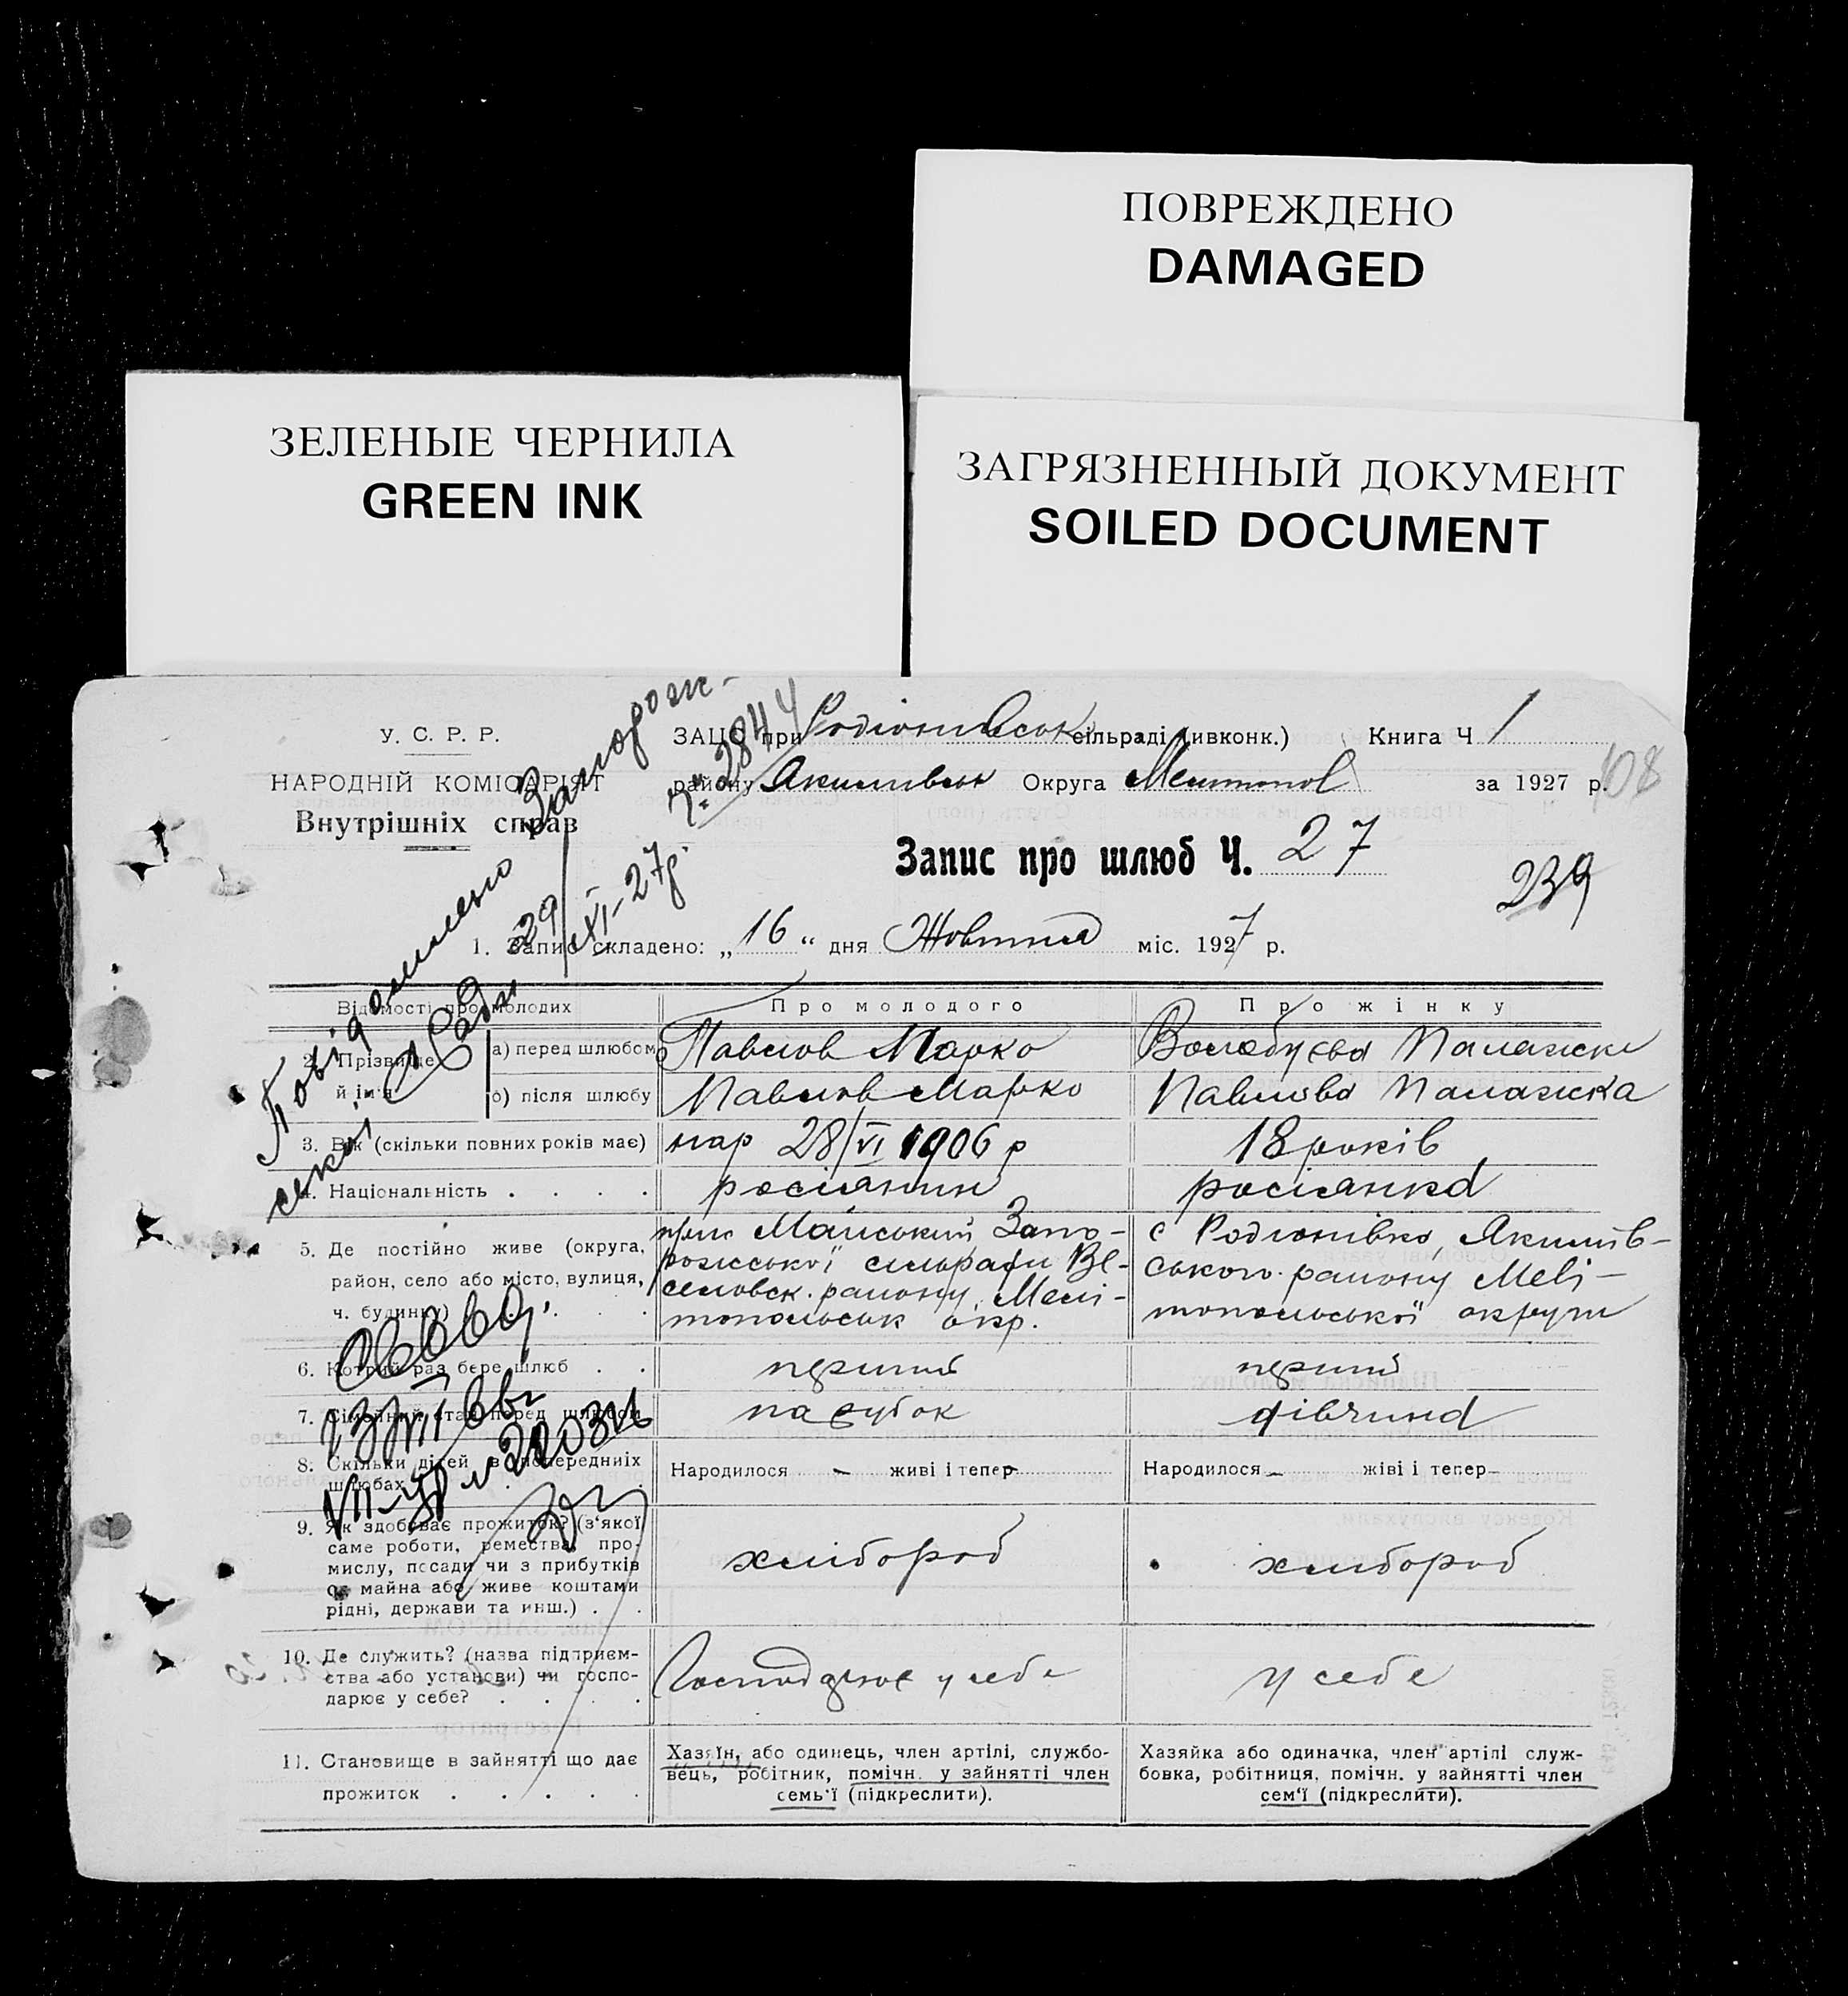 ПОВРЕЖДЕНО
DAMAGED
ЗЕЛЕНЫЕ ЧЕРНИЛА
GREEN INK
ЗАГРЯЗНЕННЫЙ ДОКУМЕНТ
SOILED DOCUMENT
У. С. Р. Р.
НАРОДНІЙ КОМІСАРІЯТ
Внутрішніх справ
ЗАЦС при Родіонивськ сільраді (ивконк.) Книга Ч 1
району Якимивськ Округа Мелитопол за 1927 р.
108
Запис про шлюб Ч. 27
239
1. Запис складено: „16“ дня Жовтня міс. 1927 р.
Повідомлено Запорож-
ської
29/XI-27р.
2844
Відомості про молодих Про молодого Про жінку
2. Прізвище й ім'я а) перед шлюбом Павлов Марко Волобуєва Палажка
б) після шлюбу Павлов Марко Павлова Палажка
3. Вік (скільки повних років має) нар 28/VI 1906 р 18 років
4. Національність . . . . росіянин росіянка
5. Де постійно живе (округа, район, село або місто, вулиця, ч. будинку)
Маиський Запо-
рожської сильради Ве-
селовск. району, Мелі-
топольськ окр.
с Родионівка, Якимів-
ського району Мелі-
топольської округи
6. Котрий раз бере шлюб . . перший перший
7. Сімейний стан перед шлюбом парубок дівчина
8. Скільки дітей в попередніх шлюбах Народилося – живі і тепер – Народилося – жіві і тепер –
9. Як здобуває прожиток? (з‘якої
саме роботи, ремества, про-
мислу, посади чи з прибутків
од майна або живе коштами
рідні, держави та инш.) . .
хлібороб хлібороб
10. Де служить? (назва підприєм-
ства або установи) чи госпо-
дарює у себе? . . . .
Господарює у себе у себе
11. Становище в зайнятті що дає
прожиток . . . . .
Хазяїн, або одинець, член артілі, службо-
вець, робітник, помічн. у зайнятті член
семь‘ї (підкреслити).
Хазяйка або одиначка, член артілі служ-
бовка, робітниця, помічн. у зайнятті член
сем‘ї (підкреслити).